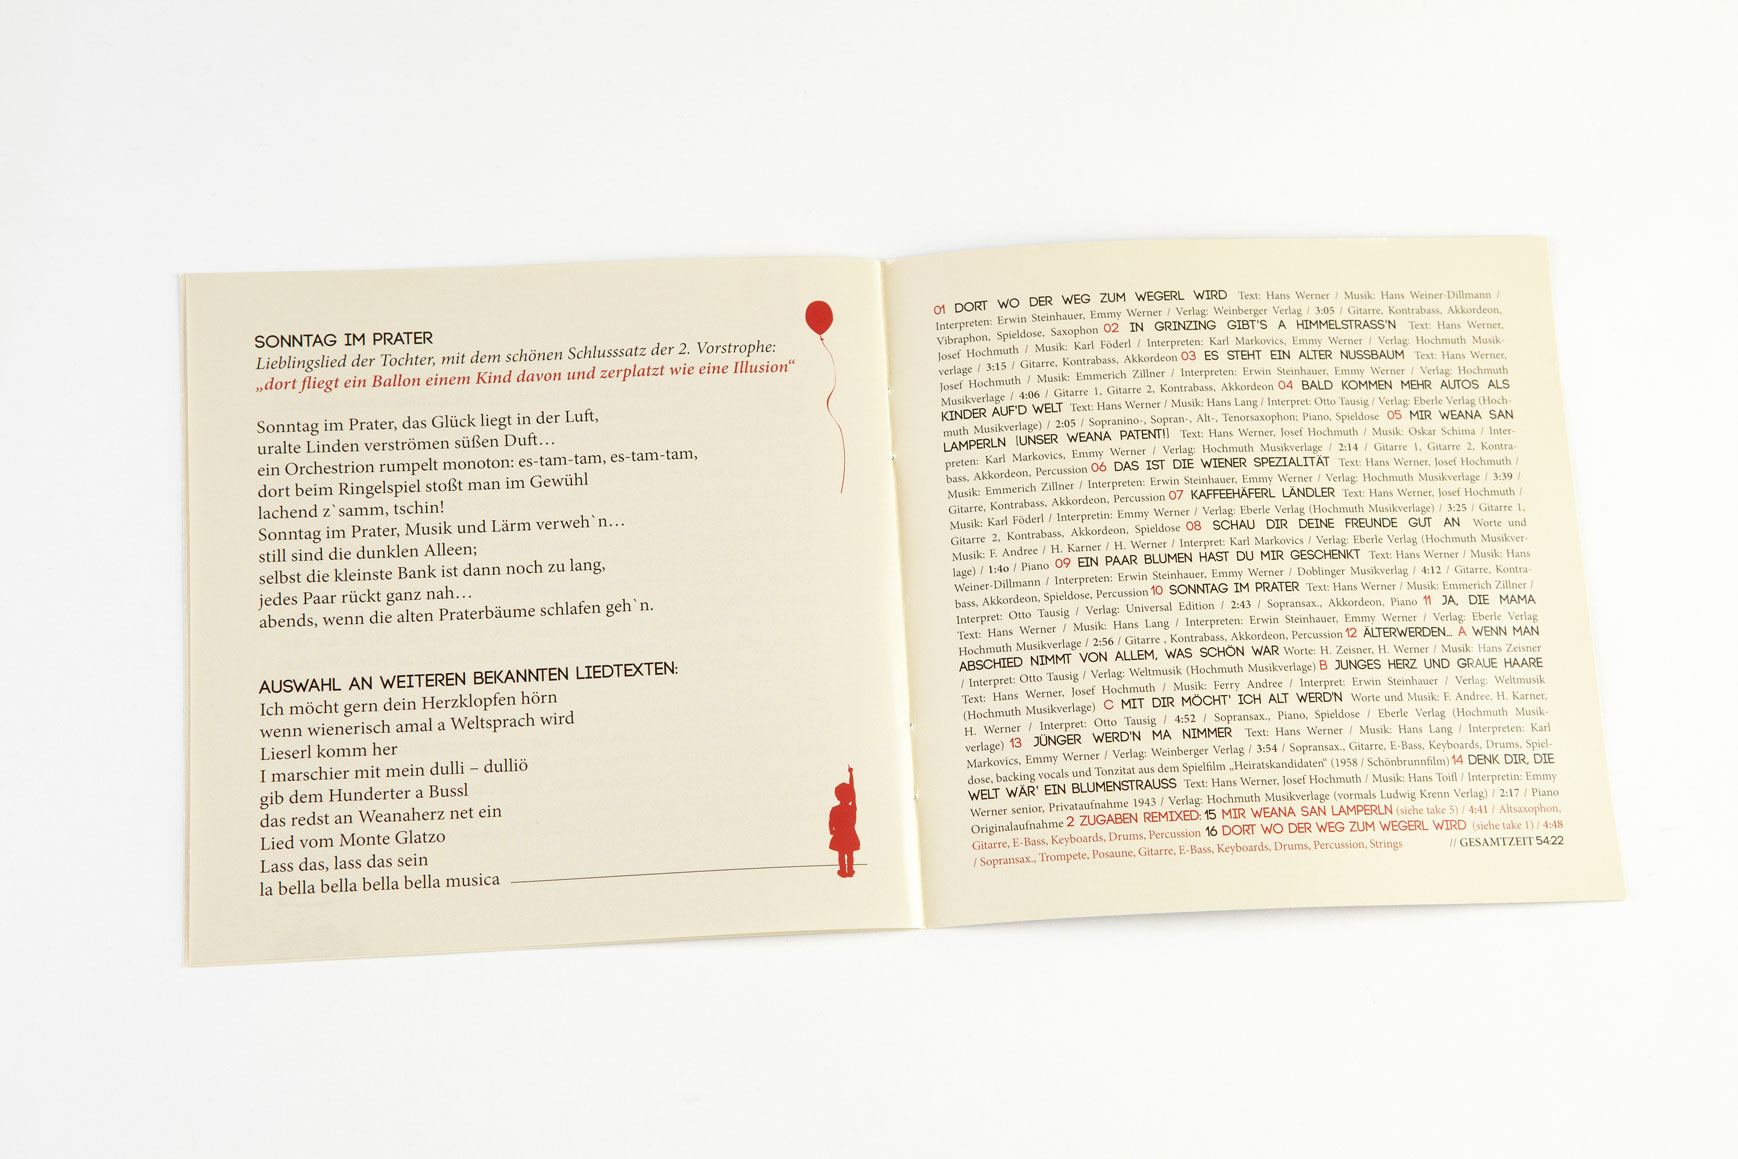 SONNTAG IM PRATER
Lieblingslied der Tochter, mit dem schönen Schlusssatz der 2. Vorstrophe:
„dort fliegt ein Ballon einem Kind davon und zerplatzt wie eine Illusion“
Sonntag im Prater, das Glück liegt in der Luft,
uralte Linden verströmen süßen Duft…
ein Orchestrion rumpelt monoton: es-tam-tam, es-tam-tam,
dort beim Ringelspiel stoßt man im Gewühl
lachend z`samm, tschin!
Sonntag im Prater, Musik und Lärm verweh`n…
still sind die dunklen Alleen;
selbst die kleinste Bank ist dann noch zu lang,
jedes Paar rückt ganz nah…
abends, wenn die alten Praterbäume schlafen geh`n.
AUSWAHL AN WEITEREN BEKANNTEN LIEDTEXTEN:
Ich möcht gern dein Herzklopfen hörn
wenn wienerisch amal a Weltsprach wird
Lieserl komm her
I marschier mit mein dulli – dulliö
gib dem Hunderter a Bussl
das redst an Weanaherz net ein
Lied vom Monte Glatzo
Lass das, lass das sein
la bella bella bella bella musica
01 DORT WO DER WEG ZUM WEGERL WIRD Text: Hans Werner / Musik: Hans Weiner-Dillmann /
Interpreten: Erwin Steinhauer, Emmy Werner / Verlag: Weinberger Verlag / 3:05 / Gitarre, Kontrabass, Akkordeon,
Vibraphon, Spieldose, Saxophon 02 IN GRINZING GIBT'S A HIMMELSTRASS'N Text: Hans Werner,
Josef Hochmuth / Musik: Karl Föderl / Interpreten: Karl Markovics, Emmy Werner / Verlag: Hochmuth Musik-
verlage / 3:15 / Gitarre, Kontrabass, Akkordeon 03 ES STEHT EIN ALTER NUSSBAUM Text: Hans Werner,
Josef Hochmuth / Musik: Emmerich Zillner / Interpreten: Erwin Steinhauer, Emmy Werner / Verlag: Hochmuth
Musikverlage / 4:06 / Gitarre 1, Gitarre 2, Kontrabass, Akkordeon 04 BALD KOMMEN MEHR AUTOS ALS
KINDER AUF'D WELT Text: Hans Werner / Musik: Hans Lang / Interpret: Otto Tausig / Verlag: Eberle Verlag (Hoch-
muth Musikverlage) / 2:05 / Sopranino-, Sopran-, Alt-, Tenorsaxophon; Piano, Spieldose 05 MIR WEANA SAN
LAMPERLN [UNSER WEANA PATENT!] Text: Hans Werner, Josef Hochmuth / Musik: Oskar Schima / Inter-
preten: Karl Markovics, Emmy Werner / Verlag: Hochmuth Musikverlage / 2:14 / Gitarre 1, Gitarre 2, Kontra-
bass, Akkordeon, Percussion 06 DAS IST DIE WIENER SPEZIALITÄT Text: Hans Werner, Josef Hochmuth /
Musik: Emmerich Zillner / Interpreten: Erwin Steinhauer, Emmy Werner / Verlag: Hochmuth Musikverlage / 3:39 /
Gitarre, Kontrabass, Akkordeon, Percussion 07 KAFFEEHÄFERL LÄNDLER Text: Hans Werner, Josef Hochmuth /
Musik: Karl Föderl / Interpretin: Emmy Werner / Verlag: Eberle Verlag (Hochmuth Musikverlage) / 3:25 / Gitarre 1,
Gitarre 2, Kontrabass, Akkordeon, Spieldose 08 SCHAU DIR DEINE FREUNDE GUT AN Worte und
Musik: F. Andree / H. Karner / H. Werner / Interpret: Karl Markovics / Verlag: Eberle Verlag (Hochmuth Musikver-
lage) / 1:40 / Piano 09 EIN PAAR BLUMEN HAST DU MIR GESCHENKT Text: Hans Werner / Musik: Hans
Weiner-Dillmann / Interpreten: Erwin Steinhauer, Emmy Werner / Doblinger Musikverlag / 4:12 / Gitarre, Kontra-
bass, Akkordeon, Spieldose, Percussion 10 SONNTAG IM PRATER Text: Hans Werner / Musik: Emmerich Zillner /
Interpret: Otto Tausig / Verlag: Universal Edition / 2:43 / Sopransax., Akkordeon, Piano 11 JA, DIE MAMA
Text: Hans Werner / Musik: Hans Lang / Interpreten: Erwin Steinhauer, Emmy Werner / Verlag: Eberle Verlag
Hochmuth Musikverlage / 2:56 / Gitarre , Kontrabass, Akkordeon, Percussion 12 ÄLTERWERDEN... A WENN MAN
ABSCHIED NIMMT VON ALLEM, WAS SCHÖN WAR Worte: H. Zeisner, H. Werner / Musik: Hans Zeisner
/ Interpret: Otto Tausig / Verlag: Weltmusik (Hochmuth Musikverlage) B JUNGES HERZ UND GRAUE HAARE
Text: Hans Werner, Josef Hochmuth / Musik: Ferry Andree / Interpret: Erwin Steinhauer / Verlag: Weltmusik
(Hochmuth Musikverlage) C MIT DIR MÖCHT' ICH ALT WERD'N Worte und Musik: F. Andree, H. Karner,
H. Werner / Interpret: Otto Tausig / 4:52 / Sopransax., Piano, Spieldose / Eberle Verlag (Hochmuth Musik-
verlage) 13 JÜNGER WERD'N MA NIMMER Text: Hans Werner / Musik: Hans Lang / Interpreten: Karl
Markovics, Emmy Werner / Verlag: Weinberger Verlag / 3:54 / Sopransax., Gitarre, E-Bass, Keyboards, Drums, Spiel-
dose, backing vocals und Tonzitat aus dem Spielfilm „Heiratskandidaten“ (1958 / Schönbrunnfilm) 14 DENK DIR, DIE
WELT WÄR' EIN BLUMENSTRAUSS Text: Hans Werner, Josef Hochmuth / Musik: Hans Toifl / Interpretin: Emmy
Werner senior, Privataufnahme 1943 / Verlag: Hochmuth Musikverlage (vormals Ludwig Krenn Verlag) / 2:17 / Piano
Originalaufnahme 2 ZUGABEN REMIXED: 15 MIR WEANA SAN LAMPERLN (siehe take 5) / 4:41 / Altsaxophon,
Gitarre, E-Bass, Keyboards, Drums, Percussion 16 DORT WO DER WEG ZUM WEGERL WIRD (siehe take 1) / 4:48
/ Sopransax., Trompete, Posaune, Gitarre, E-Bass, Keyboards, Drums, Percussion, Strings // GESAMTZEIT 54:22